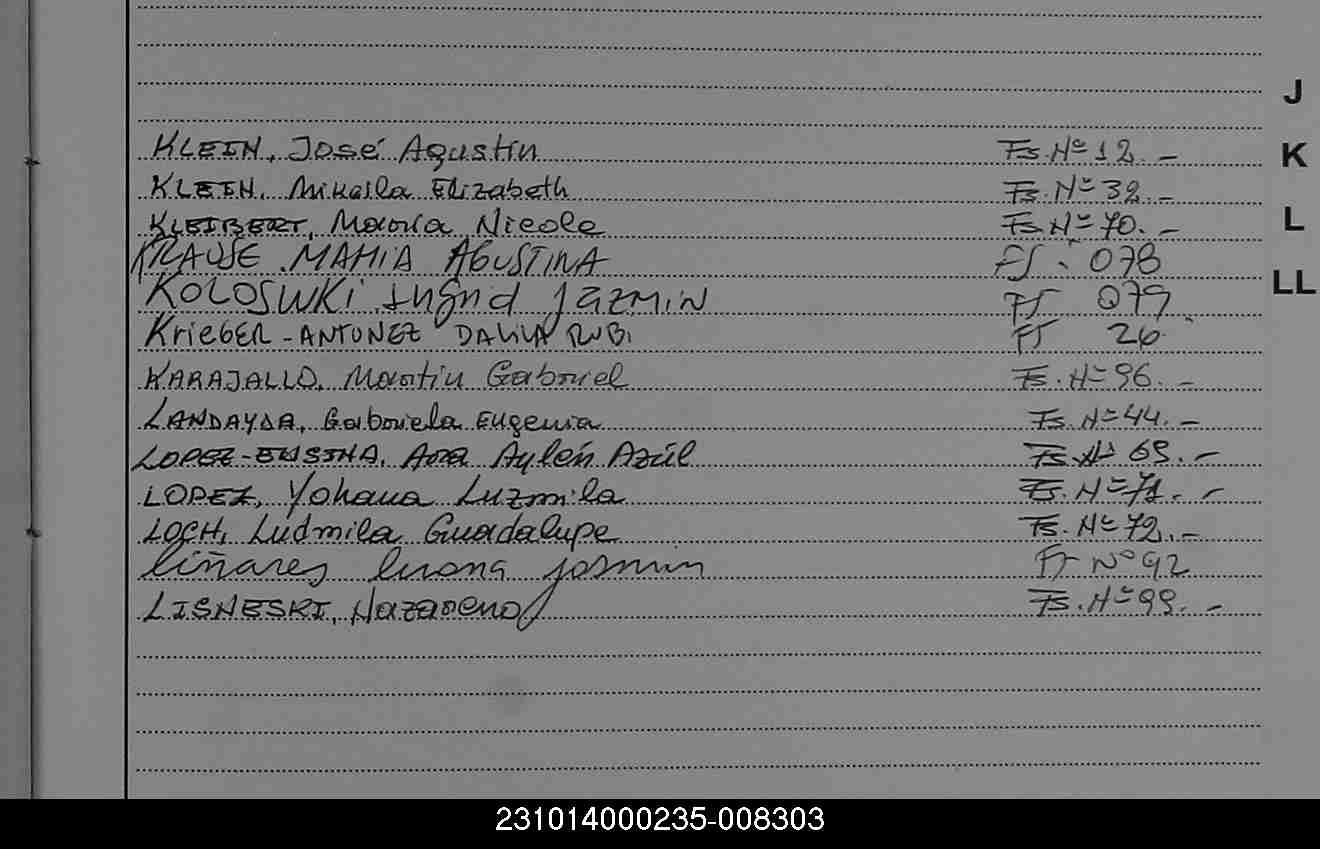 KLEIN, José Agustin Fs. Nº 12. -
KLEIN, Mikaila Elizabeth Fs. Nº 32. -
KLEIBERT, Maoria Nicole Fs. Nº 70. -
KRAUSE MAHIA AGUSTINA FS. 078
KOLOSWKi Ingrid JAZMIN FS 079
KrieGER - ANTUNEZ DALILA RUBI FS 26
KARAJALLO, Martin Gabriel Fs. Nº 96. -
LANDAYDA, Gabriela Eugenia Fs. Nº 44. -
LOPEZ- Ana Aylén Azúl Fs. Nº 69. -
LOPEZ, Yohana Luzmila Fs. Nº 71. -
LOCH, Ludmila Guadalupe Fs. Nº 72. -
liñares luana jasmin Fs Nº 92
LISNESKI, Nazareno Fs. Nº 99. -
J
K
L
LL
231014000235-008303